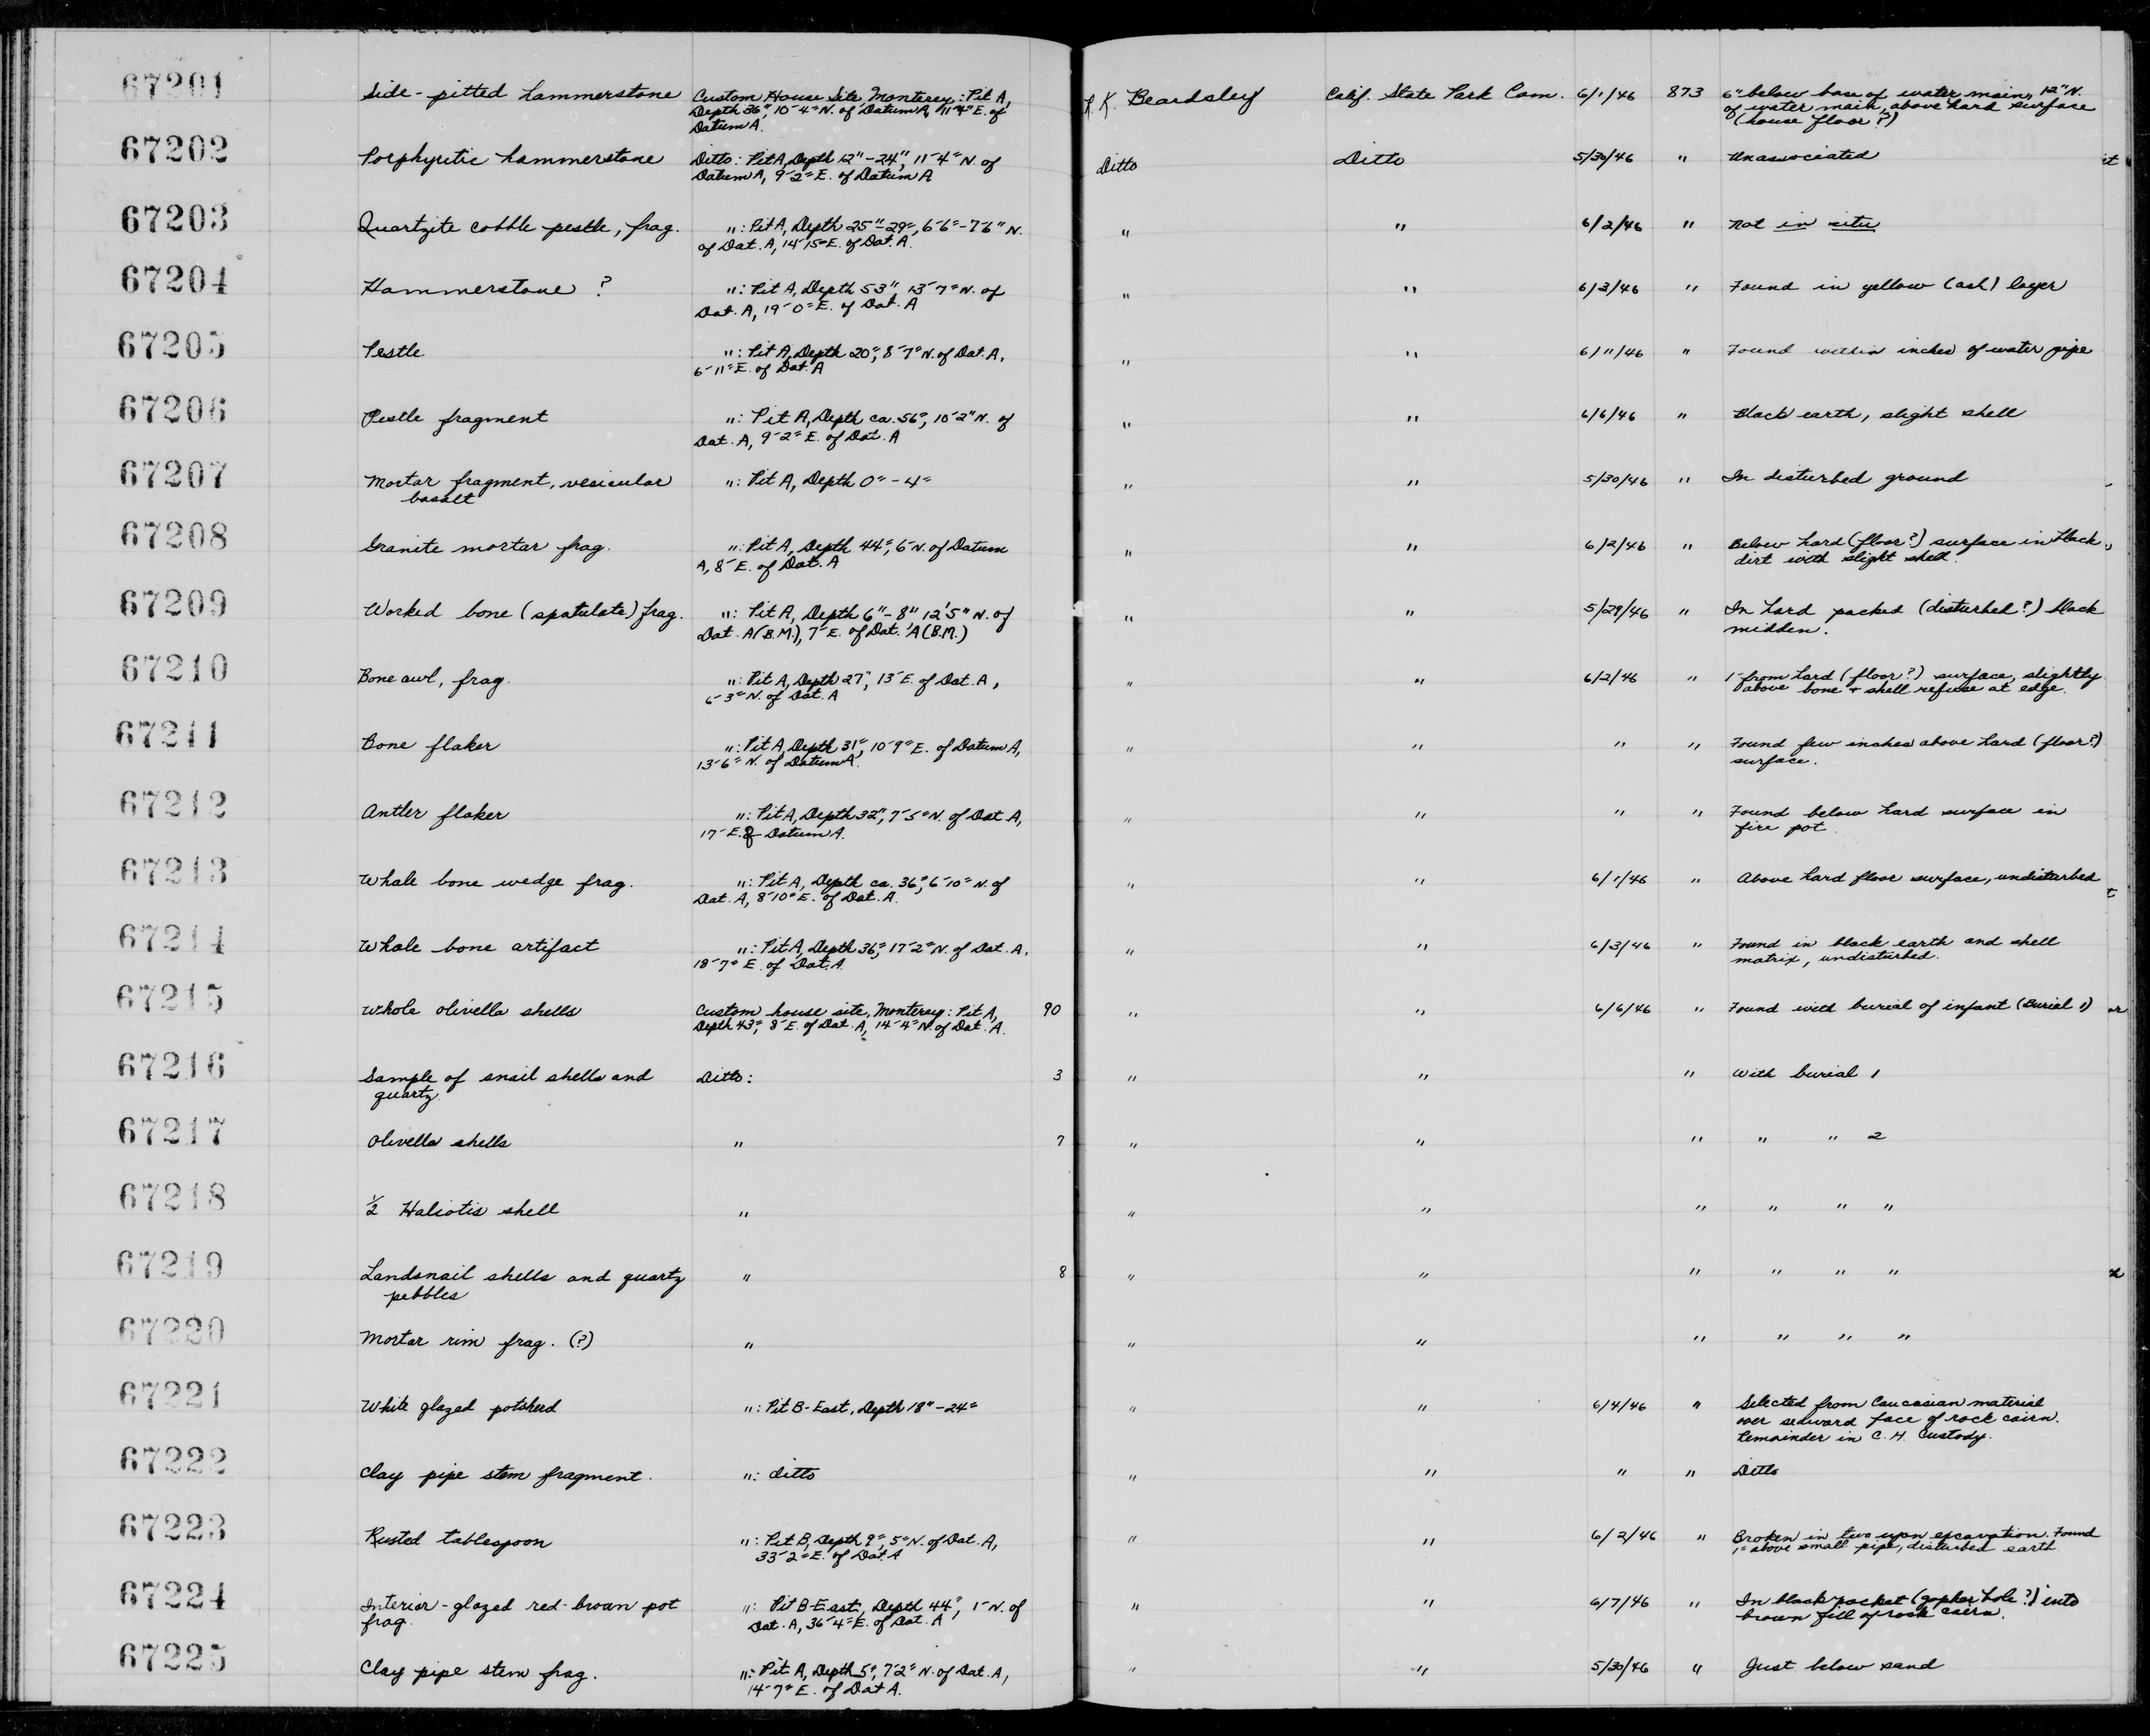 67201 Side-pitted hammerstone Custom House Site, Monterey: Pit A, R.K. Beardsley Calif. State Park Com. 6/1/46 873 6" below base of water main, 12" N.
Depth 36", 10'-4" N. of Datum A, 11'-4" E. of of water main, above hard surface
Datum A. (house floor?)
67202 Porphyritic hammerstone Ditto: Pit A, Depth 12"-24", 11'-4" N. of Ditto Ditto 5/30/46 " Unassociated
Datum A, 9'-2" E. of Datum A
67203 Quartzite cobble pestle, frag. ": Pit A, Depth 25"-29", 6'-6"-7'-6" N. " " 6/2/46 " Not in situ
of Dat. A, 14'-15" E. of Dat. A.
67204 Hammerstone ? ": Pit A, Depth 53", 13'-7" N. of " " 6/3/46 " Found in yellow (ash) layer
Dat. A, 19'-0" E. of Dat. A
67205 Pestle ": Pit A, Depth 20", 8'-7" N. of Dat. A, " " 6/11/46 " Found within inches of water pipe
6'-11" E. of Dat. A
67206 Pestle fragment ": Pit A, Depth ca. 56", 10'-2" N. of " " 6/6/46 " Black earth, slight shell
Dat. A, 9'-2" E. of Dat. A
67207 Mortar fragment, vesicular ": Pit A, Depth 0"-4" " " 5/30/46 " In disturbed ground
basalt
67208 Granite mortar frag. ": Pit A, Depth 44", 6' N. of Datum " " 6/2/46 " Below hard (floor?) surface in black
A, 8' E. of Dat. A dirt with slight shell.
67209 Worked bone (spatulate) frag. ": Pit A, Depth 6"-8" 12'5" N. of " " 5/29/46 " In hard packed (disturbed?) black
Dat. A (B.M.), 7' E. of Dat. A (B.M.) midden.
67210 Bone awl, frag. ": Pit A, Depth 27", 13' E. of Dat. A, " " 6/2/46 " 1' from hard (floor?) surface, slightly
6'-3" N. of Dat. A above bone + shell refuse at edge.
67211 Bone flaker ": Pit A, Depth 31", 10'-9" E. of Datum A, " " " " Found few inches above hard (floor?)
13'-6" N. of Datum A. surface.
67212 Antler flaker ": Pit A, Depth 32", 7'-5" N. of Dat. A, " " " " Found below hard surface in
17' E. of Datum A. fire pot.
67213 Whale bone wedge frag. ": Pit A, Depth ca. 36", 6'-10" N. of " " 6/1/46 " Above hard floor surface, undisturbed
Dat. A, 8'-10" E. of Dat. A.
67214 Whale bone artifact ": Pit A, Depth 36", 17'-2" N. of Dat. A, " " 6/3/46 " Found in black earth and shell
18'-7" E. of Dat. A. matrix, undisturbed.
67215 Whole olivella shells Custom house site, Monterey: Pit A, 90 " " 6/6/46 " Found with burial of infant (Burial 1)
Depth 43", 8' E. of Dat. A, 14'-4" N. of Dat. A.
67216 Sample of snail shells and Ditto: 3 " " " With burial 1
quartz
67217 Olivella shells " 7 " " " " " 2
67218 1/2 Haliotis shell " " " " " " "
67219 Landsnail shells and quartz " 8 " " " " " "
pebbles
67220 Mortar rim frag. (?) " " " " " " "
67221 White glazed potsherd ": Pit B-East, Depth 18"-24" " " 6/4/46 " Selected from Caucasian material
over seaward face of rock cairn.
Remainder in C. H. Custody.
67222 Clay pipe stem fragment. ": ditto " " " " Ditto
67223 Rusted tablespoon ": Pit B, Depth 9", 5" N. of Dat. A, " " 6/2/46 " Broken in two upon excavation. Found
33'-2" E. of Dat. A 1" above small pipe, disturbed earth
67224 Interior-glazed red-brown pot ": Pit B-East, Depth 44", 1' N. of " " 6/7/46 " In black pocket (gopher hole?) into
frag. Dat. A, 36'-4" E. of Dat. A brown fill of rock cairn.
67225 Clay pipe stem frag. ": Pit A, Depth 5", 7'2" N. of Dat. A, " " 5/30/46 " Just below sand
14'-7" E. of Dat A.